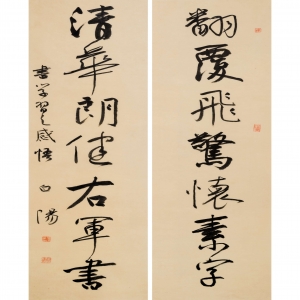 翻覆飛驚懷素字
清華朗健右軍書
書学習之感悟 白湯